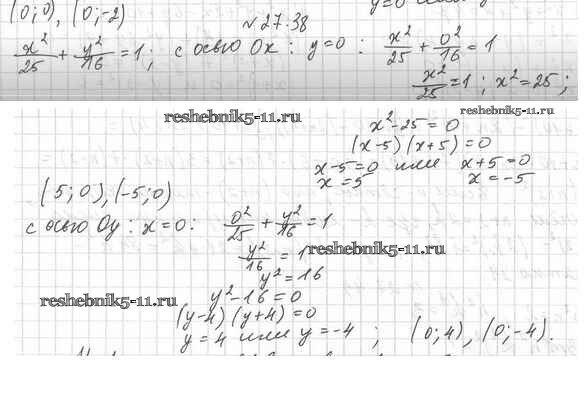 (0;0), (0;-2)
y=0
№27.38
x²/25 + y²/16 = 1; с осью Ox: y=0: x²/25 + 0²/16 = 1
x²/25 = 1; x² = 25;
reshebnik5-11.ru
reshebnik5-11.ru
x² - 25 = 0
(x-5)(x+5) = 0
x-5=0 или x+5=0
x=5 x=-5
(5;0), (-5;0)
с осью Oy: x=0: 0²/25 + y²/16 = 1
y²/16 = 1
reshebnik5-11.ru
y² = 16
reshebnik5-11.ru
y² - 16 = 0
(y-4)(y+4) = 0
y=4 или y=-4; (0;4), (0;-4).